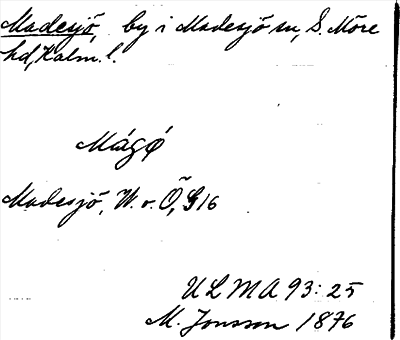 Madesjö, by i Madesjö sn, S. Möre
hd, Kalm. l.
Mágǿ
Madesjö, W. o. Ö, G16
ULMA 93:25
M. Jonsson 1876